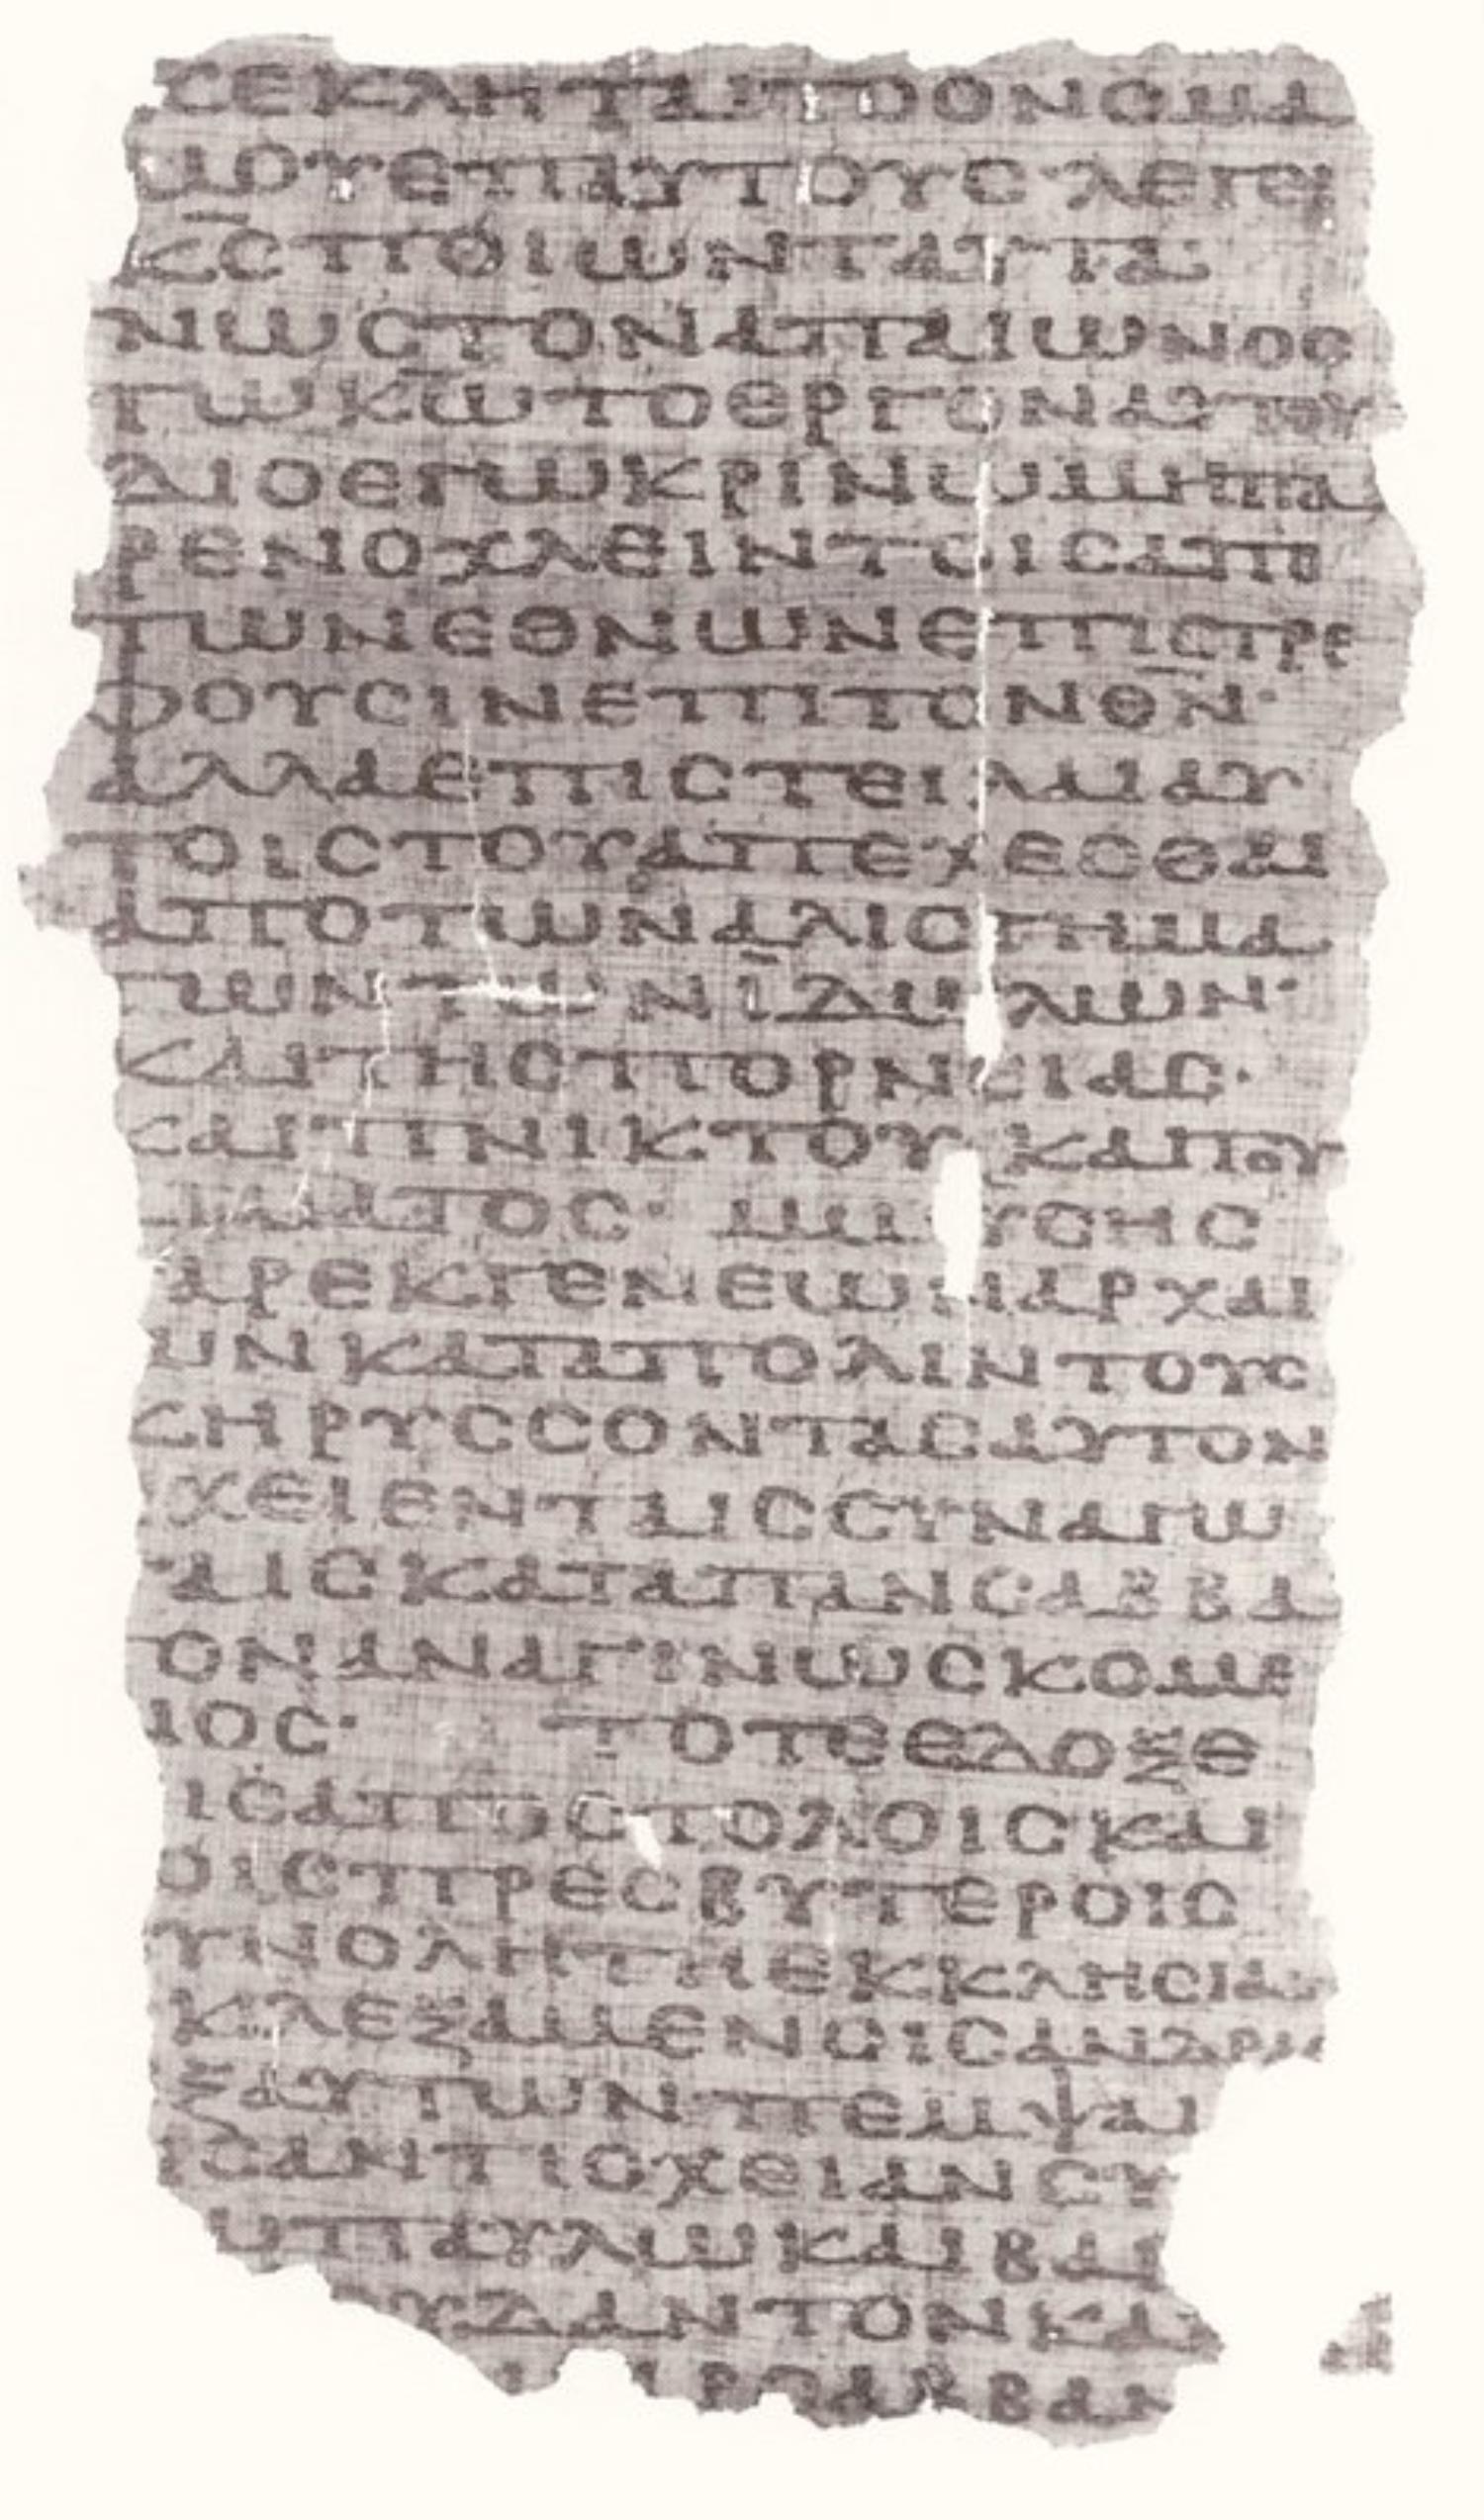 ϲεκληταιτοονομα
μουεπαυτουϲλεγει
κ̅ϲ̅ποιωνταυτα
νωϲτοναπαιωνοϲ
τωκ̅ω̅τοεργοναυτου
διοεγωκρινωμηπα
ρενοχλειντοιϲαπο
τωνεθνωνεπιϲτρε
φουϲινεπιτονθ̅ν̅·
αλλαεπιϲτειλαιαυ
τοιϲτουαπεχεϲθαι
αποτωναλιϲγημα
τωντωνϊδωλων·
καιτηϲπορνειαϲ·
καιπνικτουκαιτου
αιματοϲ· μωυϲηϲ
αρεκγενεωναρχαι
ωνκαταπολιντουϲ
κηρυϲϲονταϲαυτον
χειενταιϲϲυναγω
αιϲκαταπανϲαββα
τοναναγινωϲκομε
νοϲ· τοτεεδοξε
ιϲαποϲτολοιϲκαι
οιϲπρεϲβυτεροιϲ
υνολητηεκκληϲια
κλεξαμενοιϲανδρα
ξαυτωνπεμψαι
ιϲαντιοχειανϲυ
ωπαυλωκαιβα
υδαντονκα
ρϲαββαν